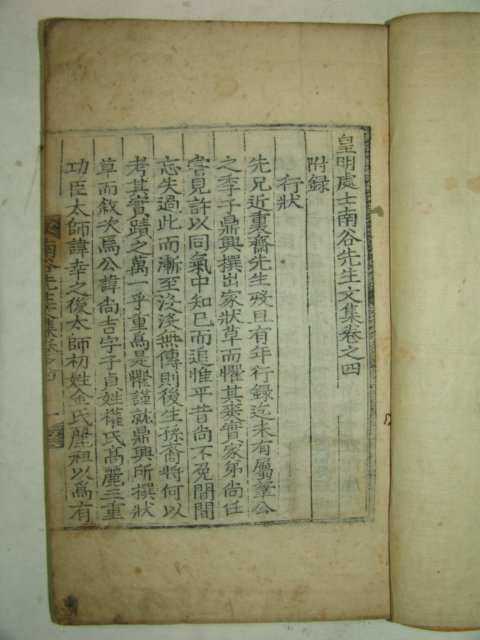 皇明處士南谷先生文集卷之四
附錄
行狀
先兄近裏齋先生歿且有年行錄迄未有屬筆公
之季子鼎興撰出家狀草而懼其爽實家弟尙任
嘗見許以同氣中知已而追惟平昔尙不免間間
忘失過此而漸至沒沒無傳則後生孫裔將何以
考其實蹟之萬一乎重爲是懼謹就鼎興所撰狀
草而敘焉公諱尙吉字子貞姓權氏高麗三重
功臣太師諱幸之後太師初姓金氏麗祖以爲有
南谷先生文集卷之四 一